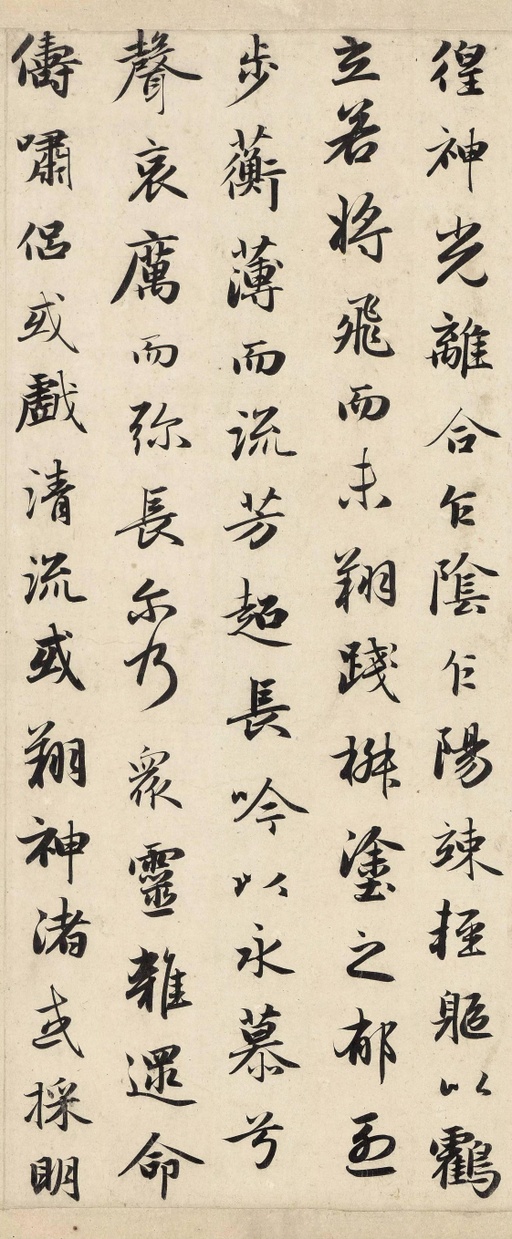 徨神光離合乍陰乍陽竦軽躯以鶴
立若将飛而未翔踐椒塗之郁烈
步蘅薄而流芳超長吟以永慕兮
聲哀厲而弥長尔乃衆靈雜遝命
儔嘯侶或戲清流或翔神渚或採明